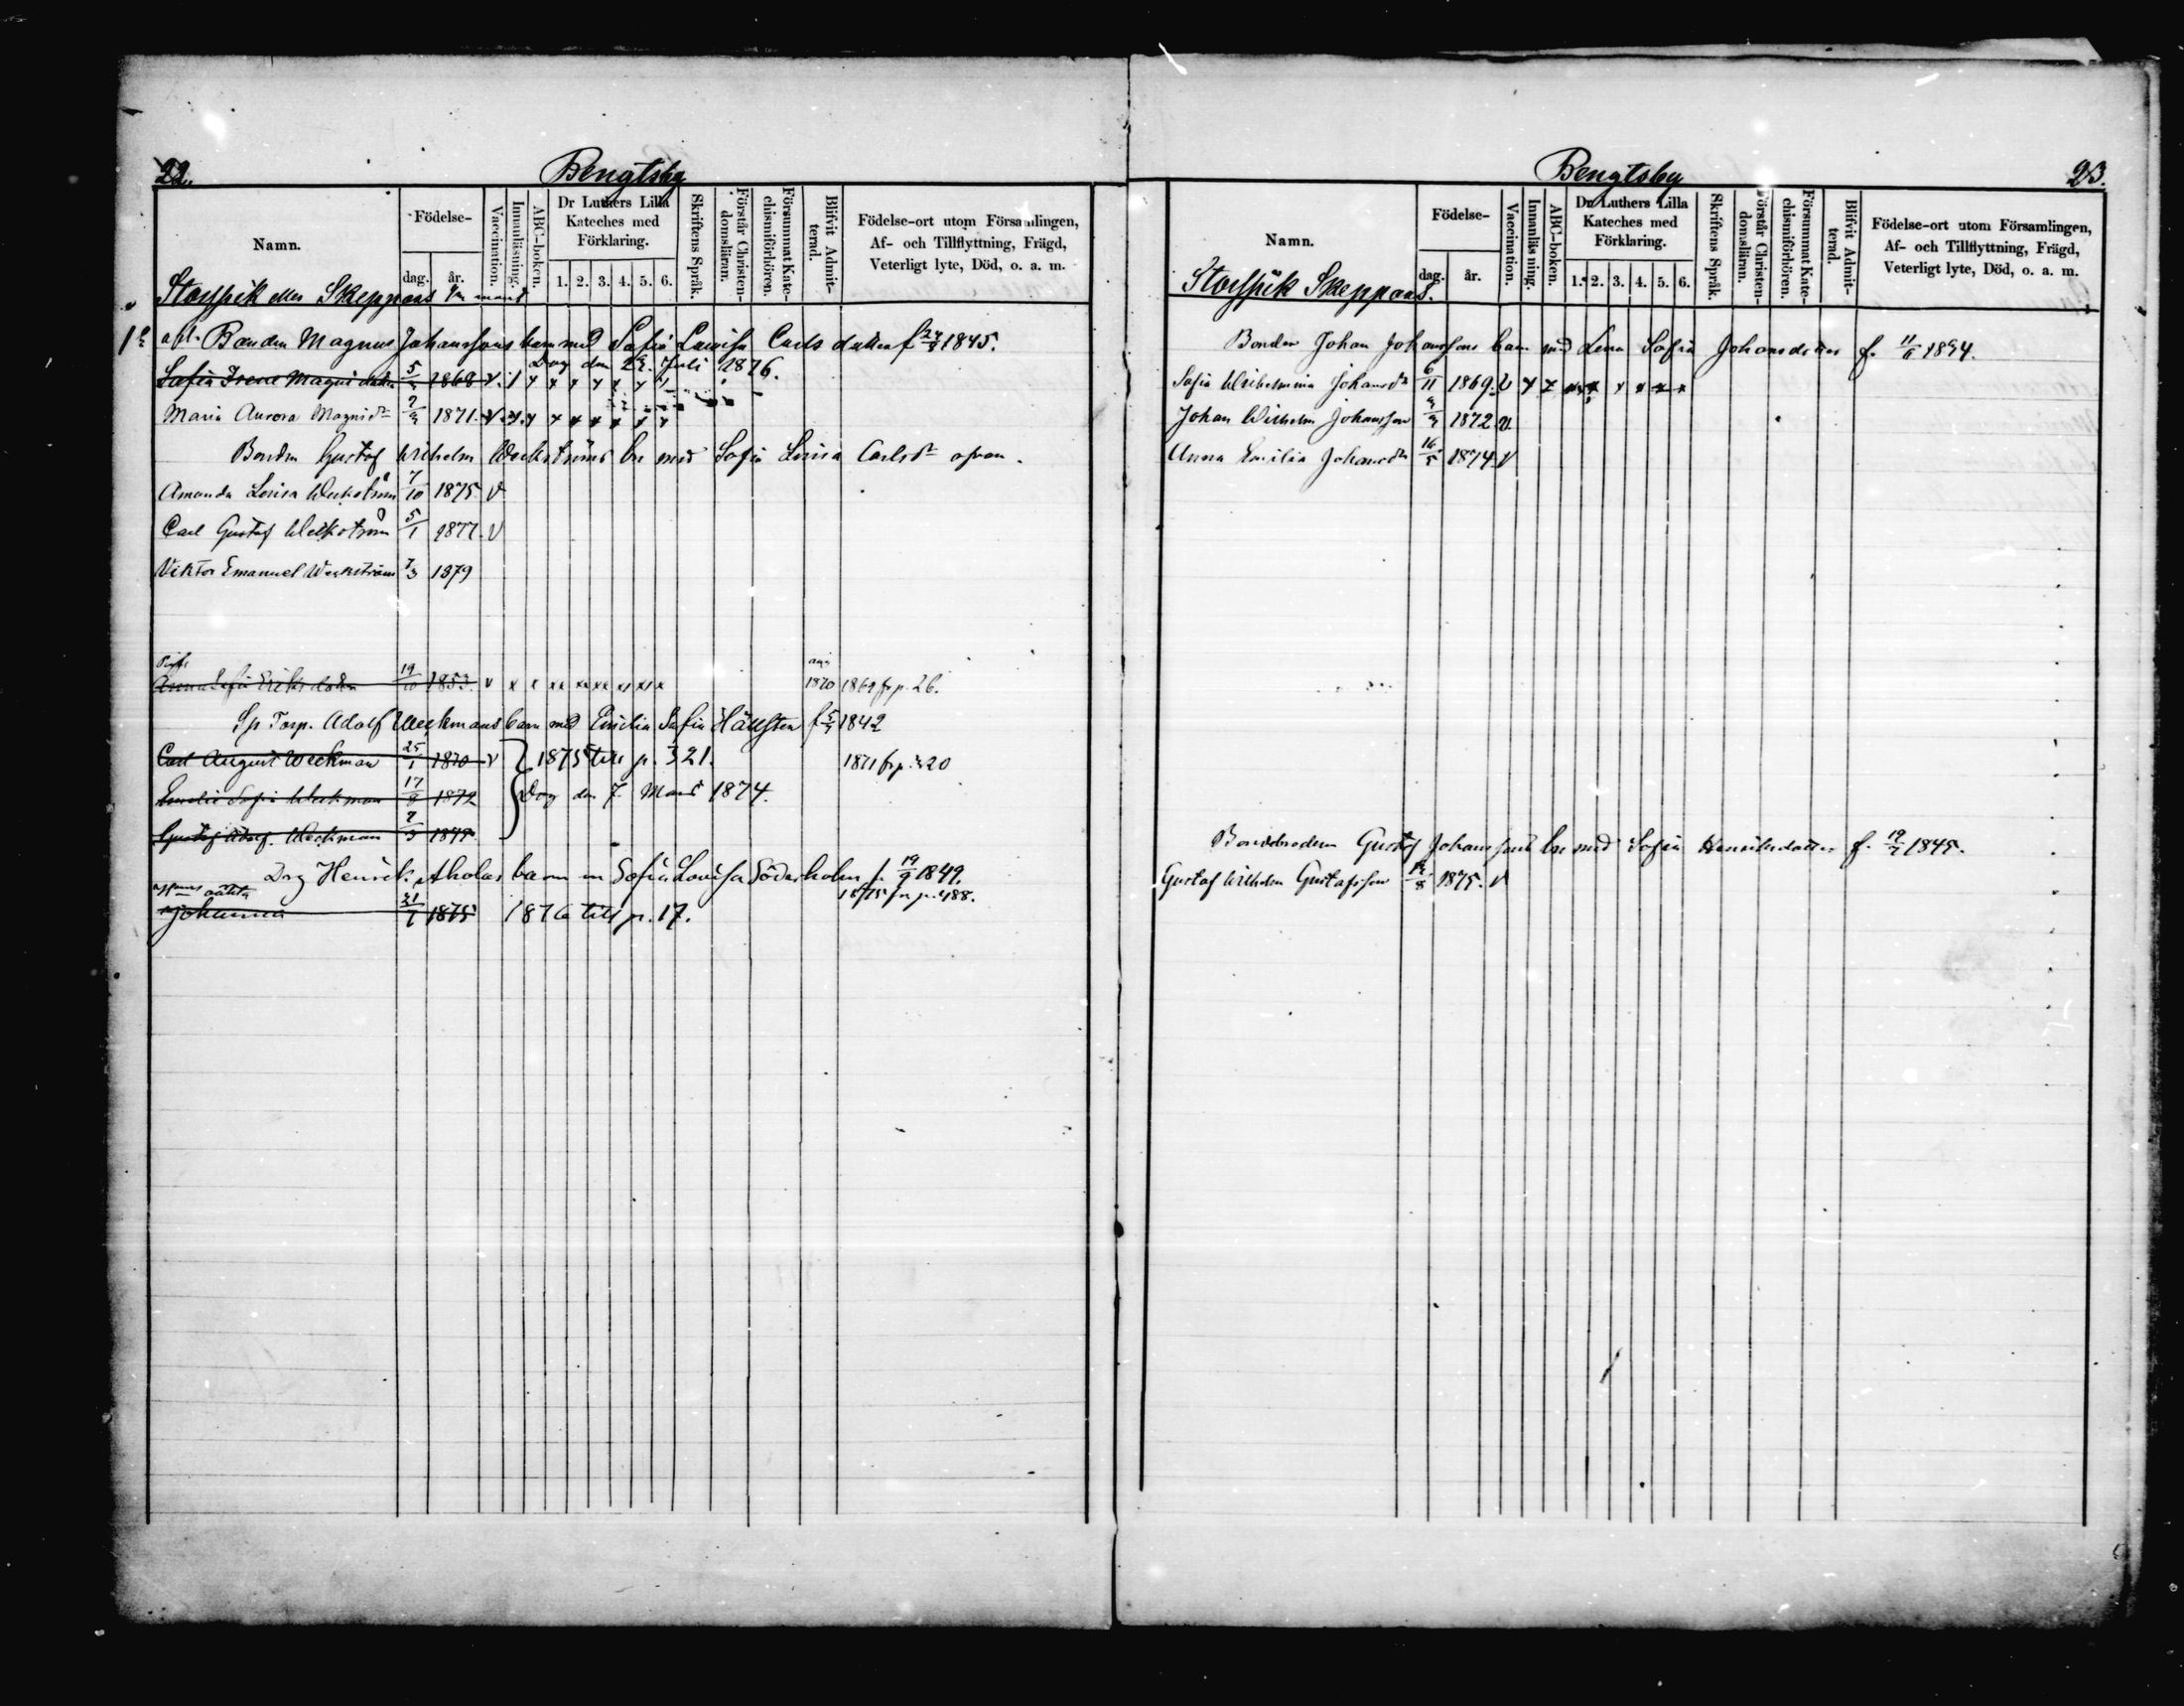 22.
Bengtsby
Namn.
Födelse-
dag. år.
Vaccination.
Innanläsning.
ABC-boken.
Dr Luthers Lilla Kateches med Förklaring.
1. 2. 3. 4. 5. 6.
Skriftens Språk.
Förstår Christendomsläran.
Försummat Katechismiförhören.
Blifvit Admitterad.
Födelse-ort utom Församlingen, Af- och Tillflyttning, Frägd, Veterligt lyte, Död, o. a. m.
Storspik eller Skeppars
Bonden Magnus Johanssons barn med Sofia Lovisa Carls dotter f. 1845.
Dog den 22. Juli 1876.
Sofia Irene Magni dotter 5 1868 v.
Maria Aurora Magnidr 1871. v. x x x x x x x
Bonden Gustaf Wilhelm Weckströms bn med Sofia Lovisa Carlsdr ofvan.
Amanda Lovisa Weckström 7/10 1875 v
Carl Gustaf Weckström 5/1 1877. v
Viktor Emanuel Weckström 7/3 1879
Pig.
Anna Sofia Eriksdotter 19/10 1853. v x x xx xx xx xx xx 1870 1869 fr p. 26.
Sp Torp. Adolf Weckmans barn med Emilia Sofia Hällsten f 1842
Carl August Weckman 25/1 1870 v 1875 till p. 321. 1871 fr p. 320
Emelie Sofia Weckman 17/8 1872 Dog den 7. Mars 1874.
Gustaf Adolf. Weckman
Drg Henrik Atholas barn m Sofia Lovisa Söderholm f. 19/9 1849.
oäkta
1875 fr p. 488.
Johanna 21/1 1875 1876 till p. 17.
Bengtsby
23.
Namn.
Födelse-
dag. år.
Vaccination.
Innanläsning.
ABC-boken.
Dr Luthers Lilla Kateches med Förklaring.
1. 2. 3. 4. 5. 6.
Skriftens Språk.
Förstår Christendomsläran.
Försummat Katechismiförhören.
Blifvit Admitterad.
Födelse-ort utom Församlingen, Af- och Tillflyttning, Frägd, Veterligt lyte, Död, o. a. m.
Storspik Skeppars.
Bonden Johan Johanssons barn med Lena Sofia Johansdotter f. 11/6
Sofia Wilhelmina Johansdr 6/11 1869. v x x x x x x x
Johan Wilhelm Johansson 1872 v.
Anna Emilia Johansdr 16/5 1874 v
Bondebrodern Gustaf Johanssons bn med Sofia Henriksdotter f. 1845.
Gustaf Wilhelm Gustafsson 1875. v